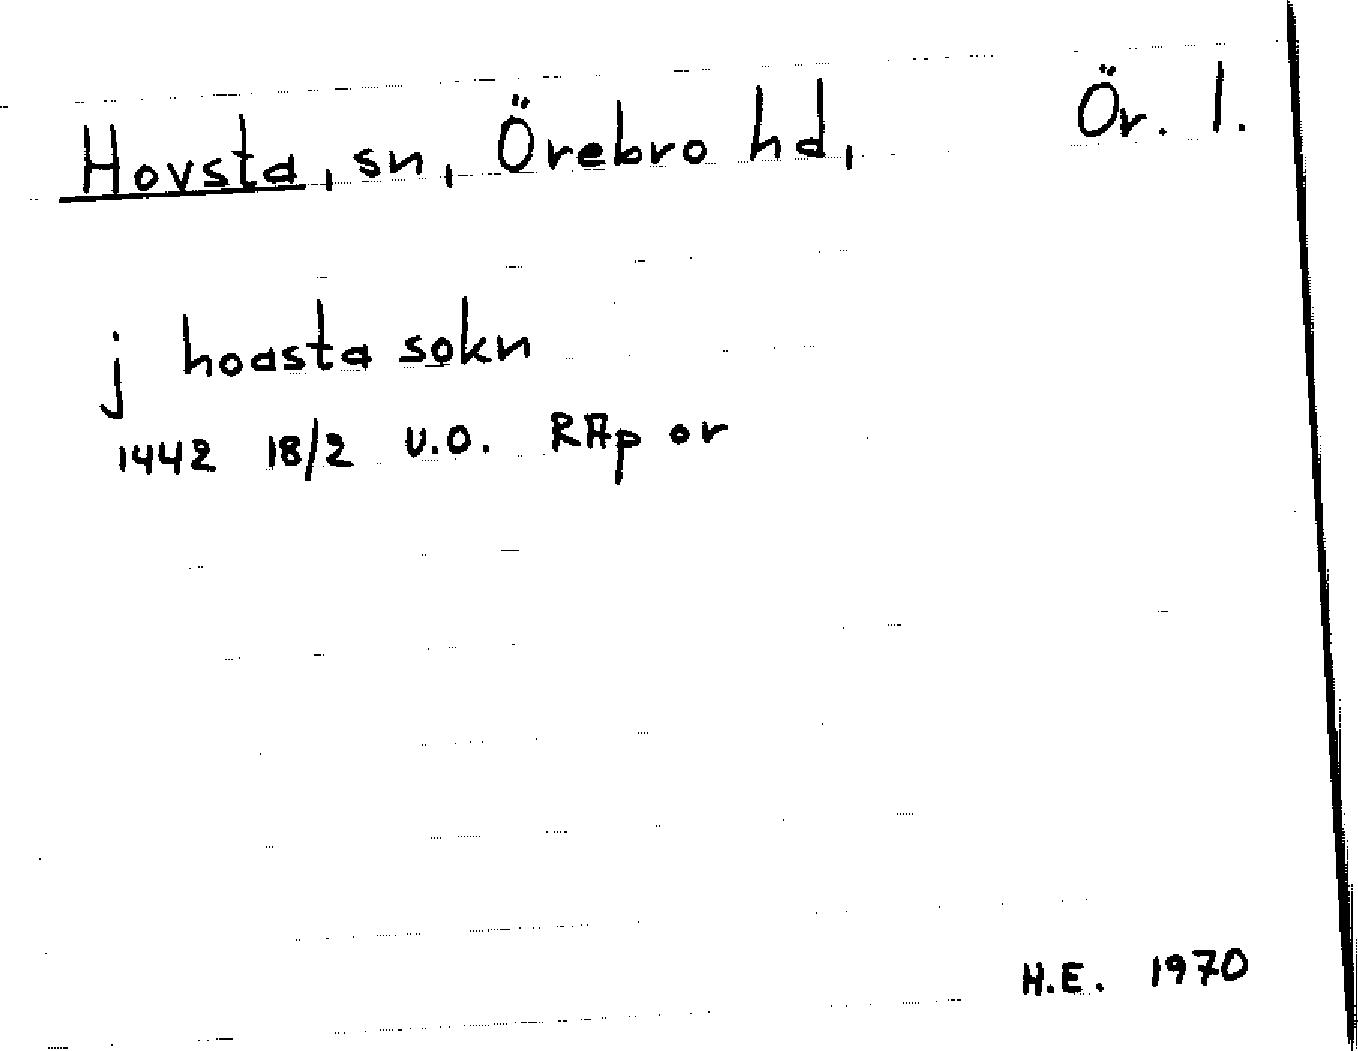 Hovsta, sn, Örebro hd, Ör. l.
j hoasta sokn
1442 18/2 u.o. RAp or
H.E. 1970